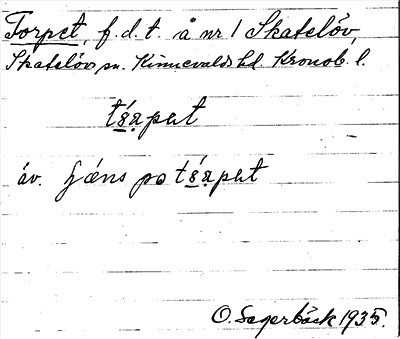 Torpet, f.d.t. å nr 1 Skatelöv,
Skatelövs sn. Kinnevalds hd. Kronob. l.
tɷ́ɐ̣pət
äv. hæns po tɷ́ɐ̣pət
O. Sagerbäck 1935.